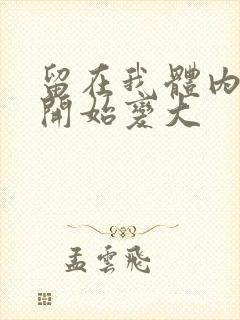 留在我體內
開始變大
孟雲飛